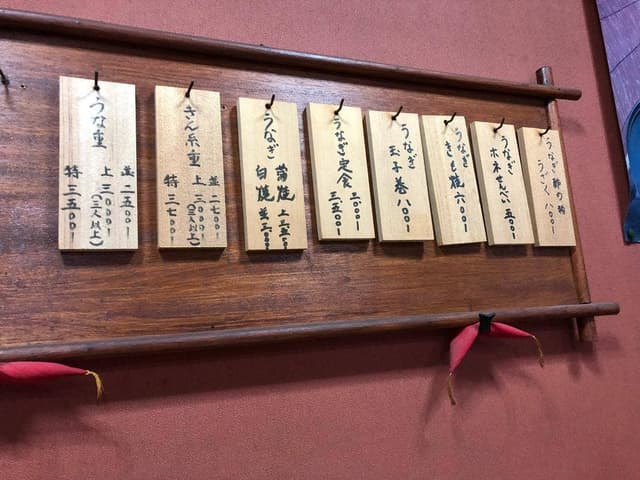 うな重
並 二五〇〇-
上 三〇〇〇-
(二人以上)
特 三五〇〇-
きん糸重
並 二七〇〇-
上
(二人以上)
特 三七〇〇-
うなぎ
蒲焼 上
白焼 並
うなぎ定食
三五〇〇-
うなぎ
玉子巻 八〇〇-
うなぎ
きも焼 六〇〇-
うなぎ
ホネせんべい 五〇〇-
うなぎ 酢の物
うざく 八〇〇-